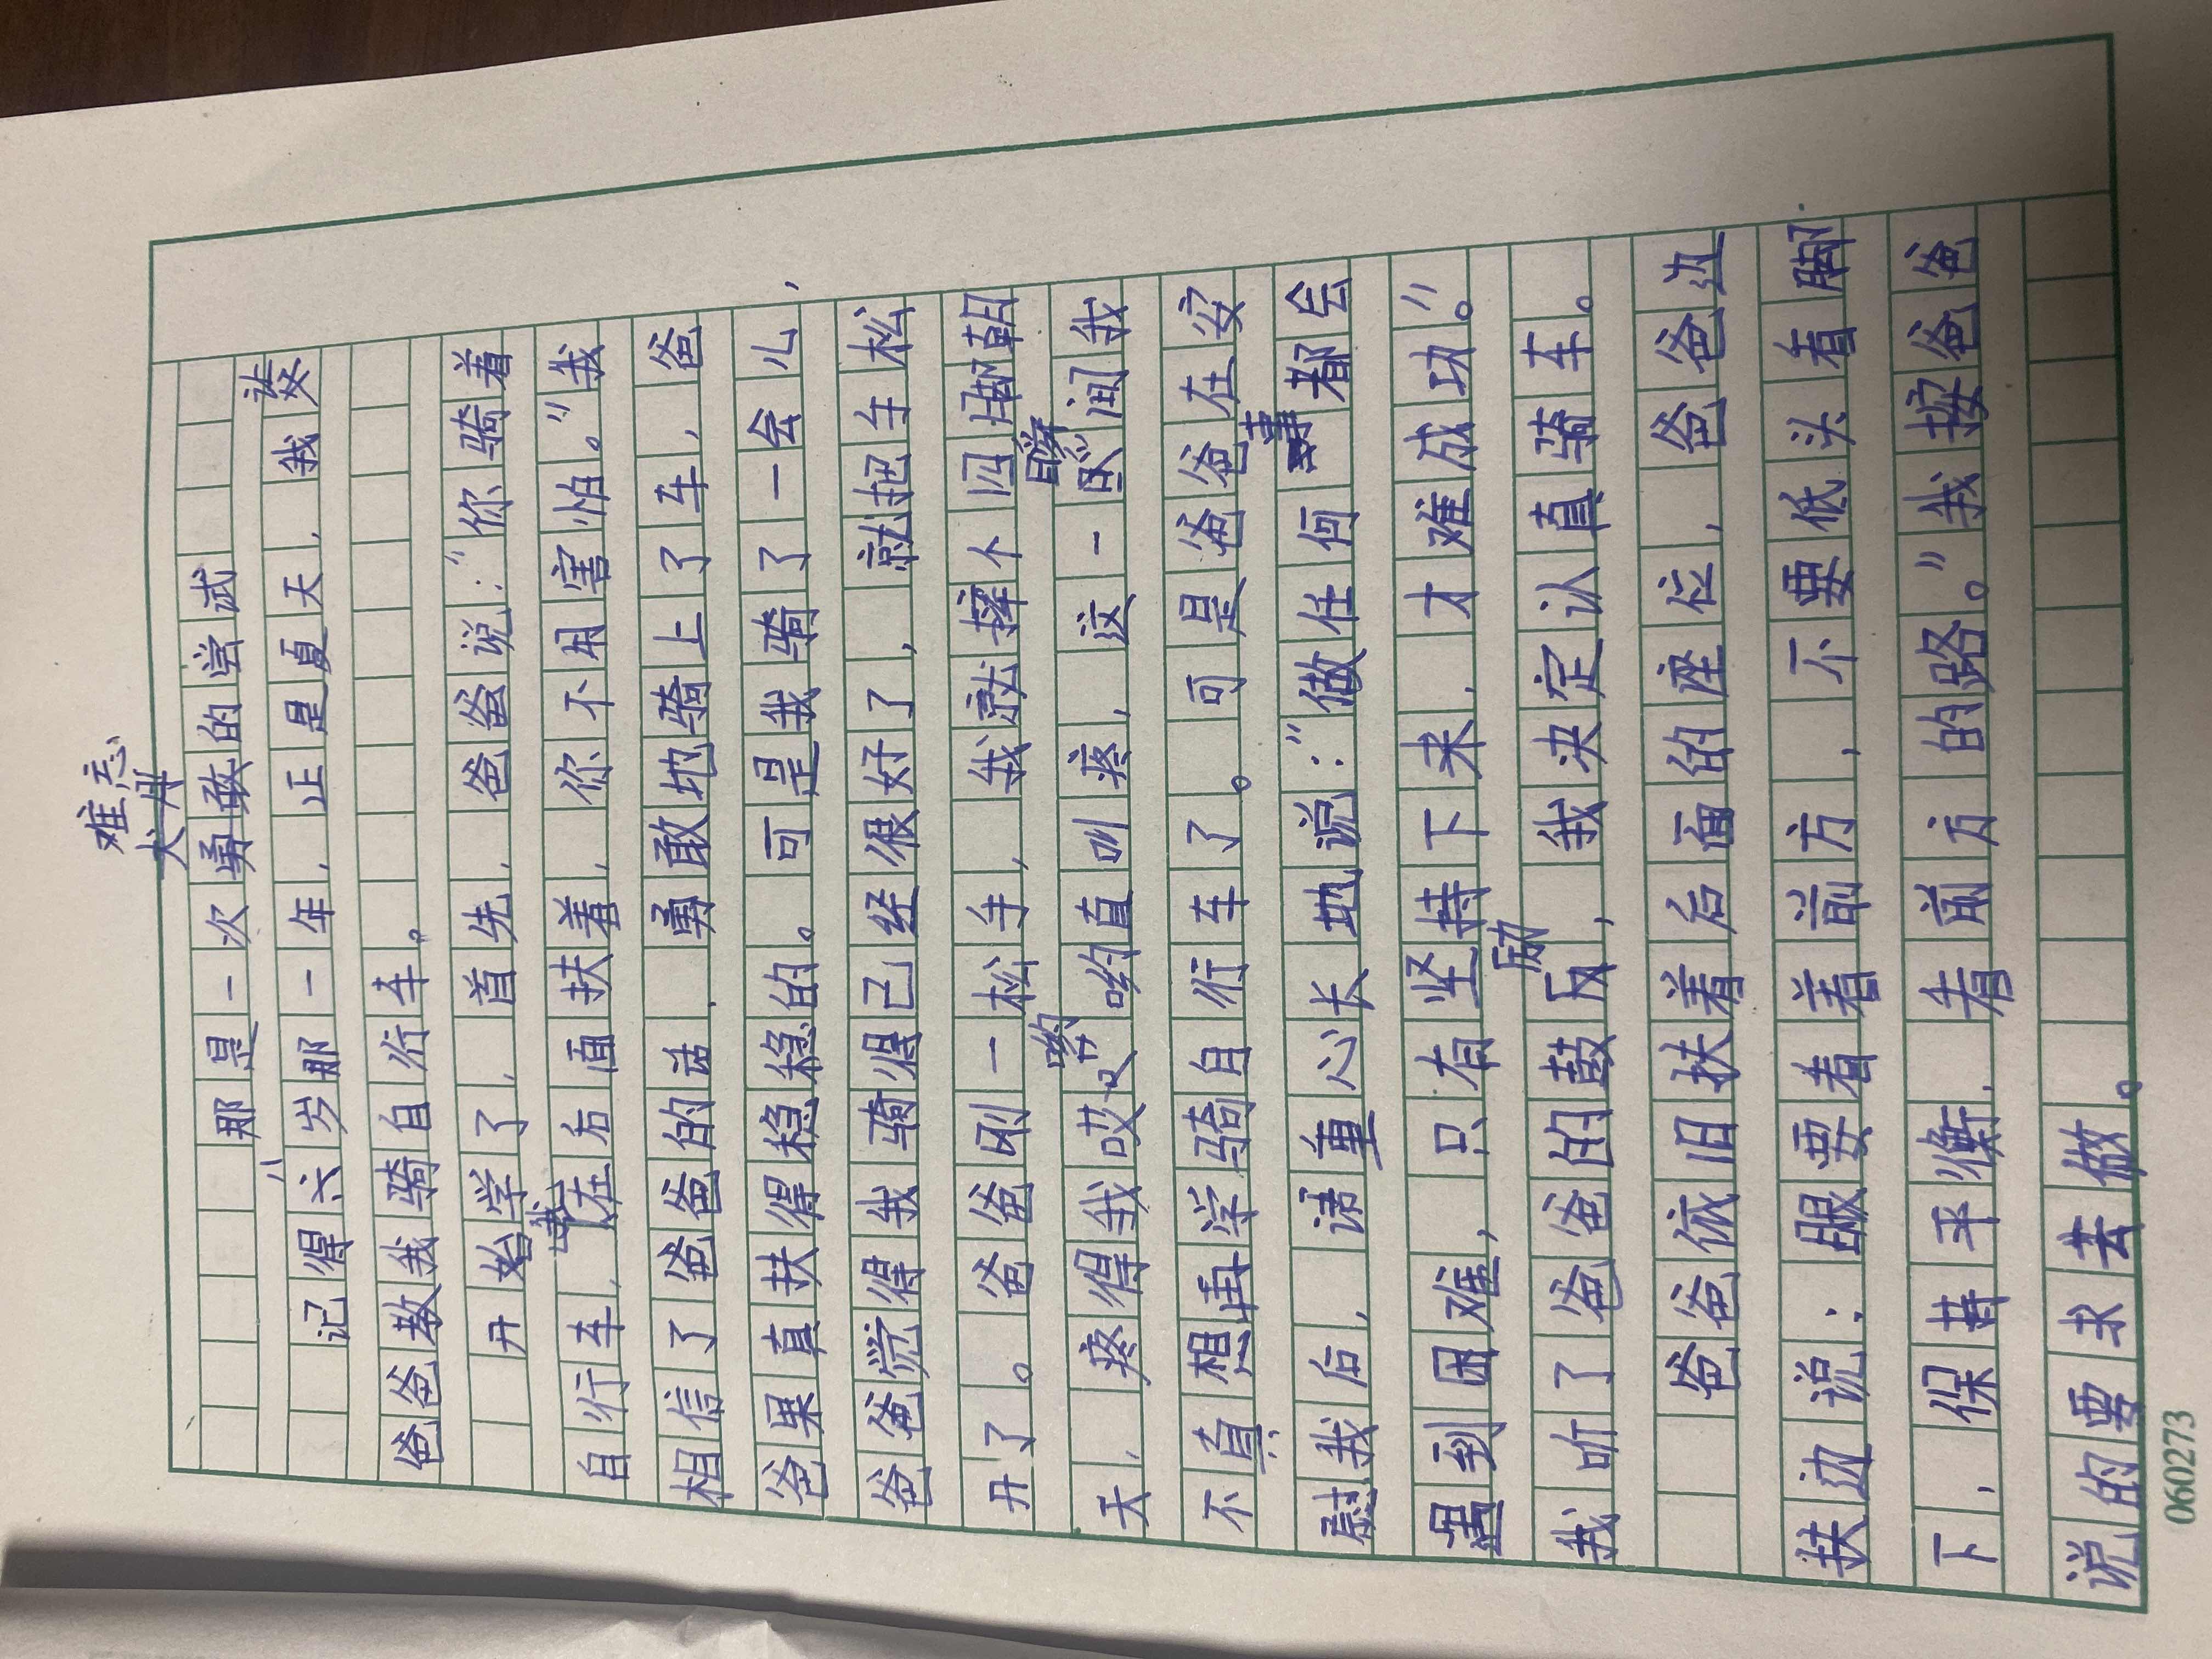 难忘
那是一次勇敢的尝试
记得八岁那一年，正是夏天，我让
爸爸教我骑自行车。
开始学了，首先，爸爸说：“你骑着
自行车，我在后面扶着，你不用害怕。”我
相信了爸爸的话，勇敢地骑上了车，爸
爸果真扶得稳稳的。可是我骑了一会儿，
爸爸觉得我骑得已经很好了，就把手松
开了。爸爸刚一松手，我就摔个四脚朝
天，疼得我哎哟哟直叫疼，这一瞬间我
不真想再学骑自行车了。可是爸爸在安
慰我后，语重心长地说：“做任何事都会
遇到困难，只有坚持下来，才难成功。”
我听了爸爸的鼓励，我决定认真骑车。
爸爸依旧扶着后面的座位，爸爸边
扶边说：眼要看着前方，不要低头看脚
下，保持平衡，看前方的路。”我按爸爸
说的要求去做。
060273